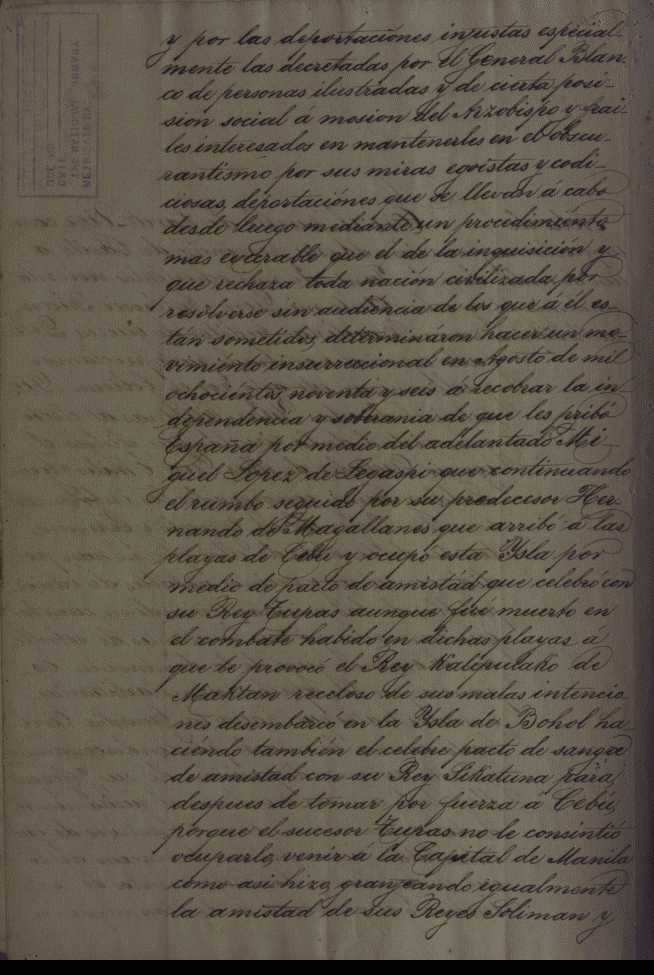 y por las deportaciónes injustas especial-
mente las decretadas por el General Blan-
co de personas ilustradas y de cierta posi-
sion social á mosion del Arzobispo y frai-
les interesados en mantenerles en el obscu-
rantismo por sus miras egoistas y codi-
ciosas, deportaciónes que se llevan á cabo
desde luego mediante un procedimiento
mas execrable que el de la inquisición y
que rechaza toda nación civilizada por
resolverse sin audiencia de los que á él es-
tán sometidos, determináron hacer un mo-
vimiento insurreccional en Agosto de mil
ochociéntos noventa y seis á recobrar la in-
dependencia y soberania de que les pribó
España por medio del adelantado Mi-
guel Lopez de Legaspi que continuando
el rumbo seguido por su predecesor Her-
nando de Magallanes que arribó á las
playas de Cebú y ocupó esta Ysla por
medio de pacto de amistad que celebró con
su Rey Tupas aunque fué muerto en
el combate habido en dichas playas a
que le provocó el Rey Kalipulako de
Maktan receloso de sus malas intencio
nes desembarcó en la Ysla de Bohol ha
ciéndo también el celebre pacto de sangre
de amistad con su Rey Sikatuna para,
despues de tomar por fuerza á Cebú,
porque el sucesor Tupas no le consintió
ocuparla, venir á la Capital de Manila
como asi hizo, granjeándo igualmente
la amistad de sus Reyes Soliman y